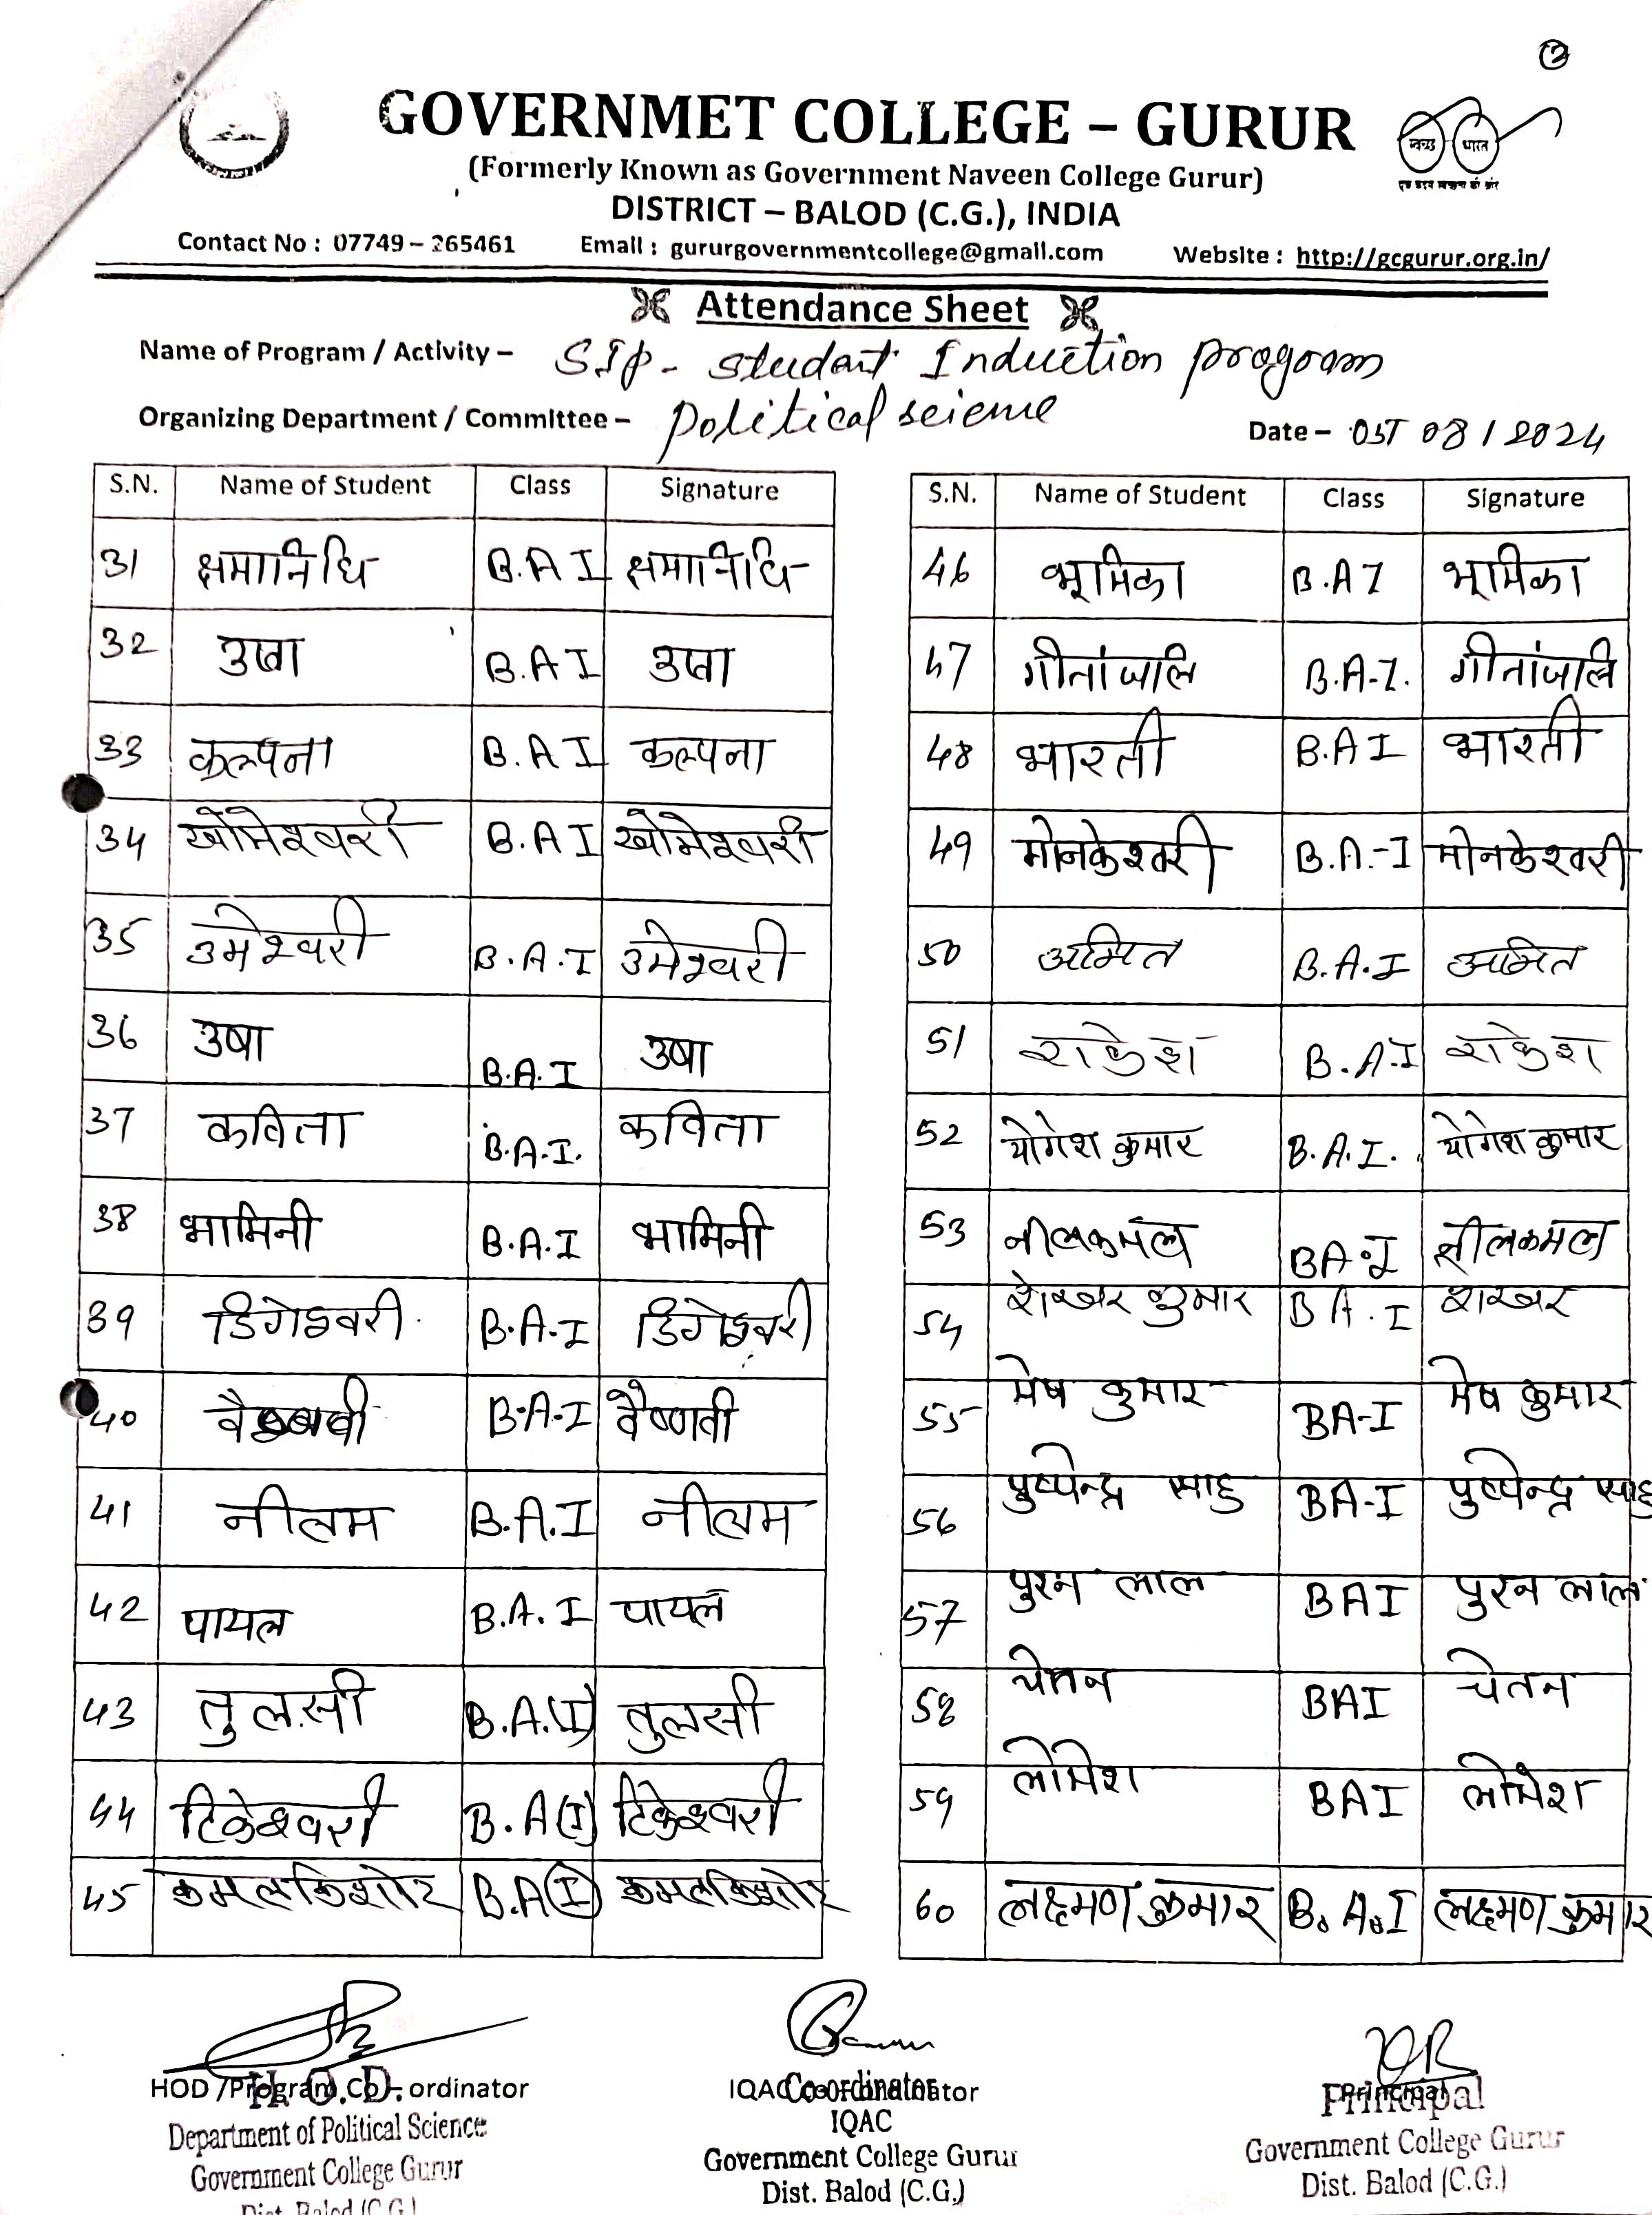 ②
GOVERNMET COLLEGE – GURUR
स्वच्छ भारत
(Formerly Known as Government Naveen College Gurur)
एक कदम स्वच्छता की ओर
DISTRICT – BALOD (C.G.), INDIA
Contact No : 07749 – 265461 Email : gururgovernmentcollege@gmail.com Website : http://gcgurur.org.in/
Attendance Sheet
Name of Program / Activity – SIP - Student Induction program
Organizing Department / Committee – Political science Date – 08/2024
S.N. Name of Student Class Signature
31 क्षमानिधि B.A I क्षमानिधि
32 उषा B.A I उषा
33 कल्पना B.A I कल्पना
34 खोमेश्वरी B.A I खोमेश्वरी
35 उमेश्वरी B.A.I उमेश्वरी
36 उषा B.A.I उषा
37 कविता B.A.I. कविता
38 भामिनी B.A.I भामिनी
39 डिगेश्वरी B.A.I डिगेश्वरी
40 वैष्णवी B.A-I वैष्णवी
41 नीलम B.A.I नीलम
42 पायल B.A.I पायल
43 तुलसी B.A.(I) तुलसी
44 टिकेश्वरी B.A(I) टिकेश्वरी
45 कमलकिशोर B.A(I) कमलकिशोर
S.N. Name of Student Class Signature
46 भूमिका B.A I भूमिका
47 गीतांजलि B.A-I. गीतांजलि
48 भारती B.A I भारती
49 मोनकेश्वरी B.A.-I मोनकेश्वरी
50 अमित B.A.I अमित
51 राकेश B.A.I राकेश
52 योगेश कुमार B.A.I. योगेश कुमार
53 नीलकमल BA-I नीलकमल
54 शेखर कुमार BA.I शेखर
55 मेष कुमार BA-I मेष कुमार
56 पुष्पेन्द्र साहु BA-I पुष्पेन्द्र साहु
57 पुरन लाल BAI पुरन लाल
58 चेतन BAI चेतन
59 लोमेश BAI लोमेश
60 लक्ष्मण कुमार B.A.I लक्ष्मण कुमार
HOD /Program Co - ordinator
H. O. D.
Department of Political Science
Government College Gurur
Dist. Balod (C.G.)
IQAC Co-ordinator
Co-ordinator
IQAC
Government College Gurur
Dist. Balod (C.G.)
Principal
Principal
Government College Gurur
Dist. Balod (C.G.)